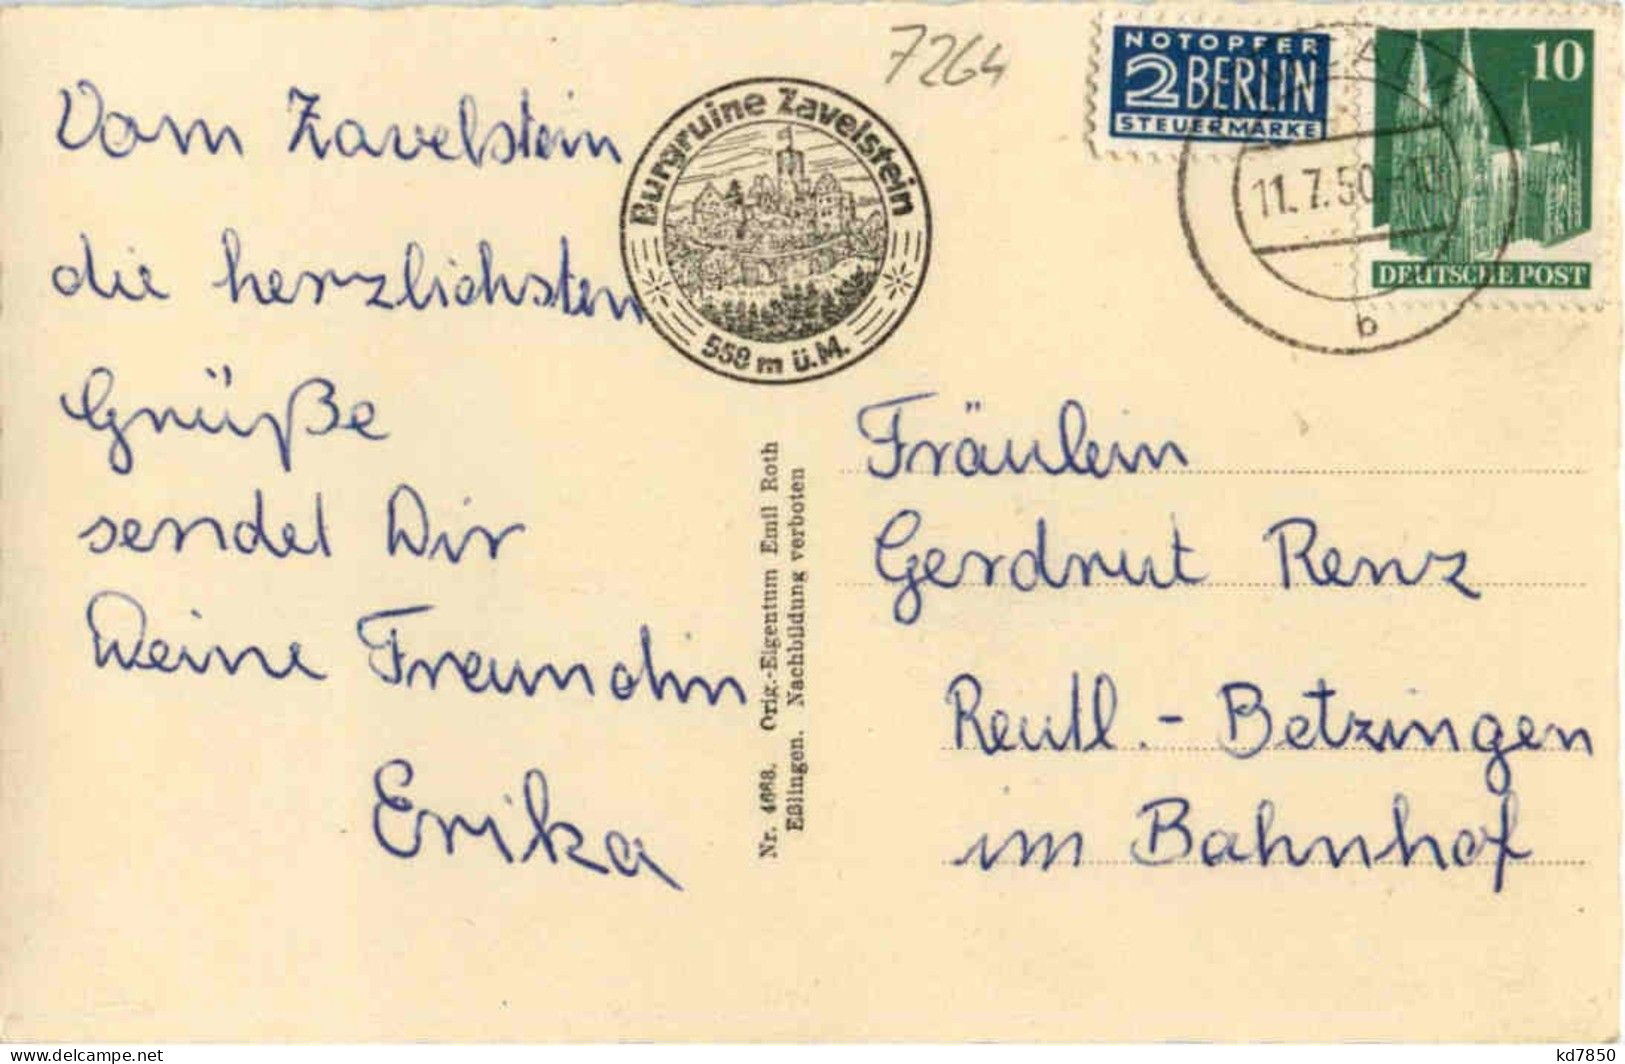 7264
NOTOPFER
2 BERLIN
STEUERMARKE
10
DEUTSCHE POST
11.7.50
b
Burgruine Zavelstein
559 m ü.M.
Vom Zavelstein
die herzlichsten
Grüße
sendet Dir
Deine Freundin
Erika
Nr. 4668. Orig.-Eigentum Emil Roth
Eßlingen. Nachbildung verboten
Fräulein
Gerdrut Renz
Reutl.-Betzingen
im Bahnhof
kd7850